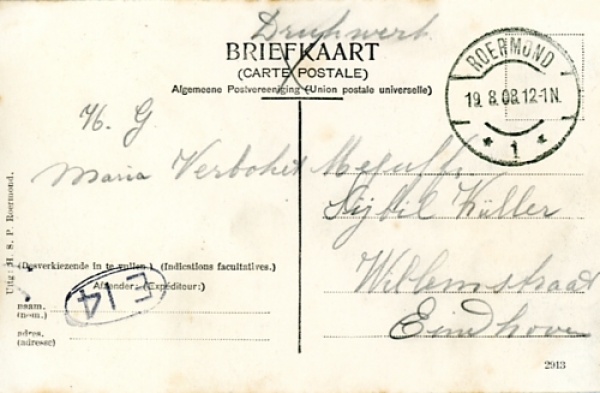 Drukwerk
BRIEFKAART
(CARTE POSTALE)
Algemeene Postvereeniging (Union postale universelle)
ROERMOND
19.8.08.12-1N.
* 1 *
H. G.
Maria Verboket
Mejuff.
Sybil Küller
Willemstraat
Eindhoven
Uitg: H. S. P. Roermond.
(Desverkiezende in te vullen) (Indications facultatives.)
Afzender: (Expéditeur:)
E 14
naam.
(nom.)
adres.
(adresse)
2943